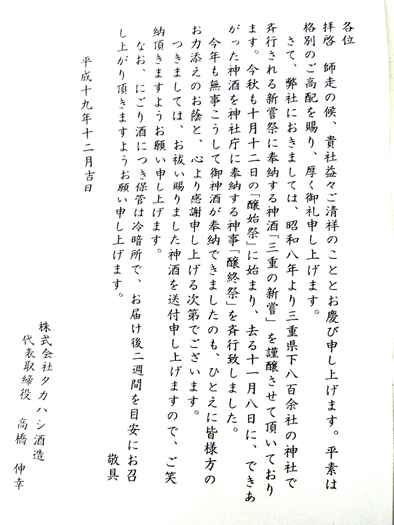 各位
拝啓　師走の候、貴社益々ご清祥のこととお慶び申し上げます。平素は
格別のご高配を賜り、厚く御礼申し上げます。
さて、弊社におきましては、昭和八年より三重県下八百余社の神社で
斉行される新嘗祭に奉納する神酒「三重の新嘗」を謹醸させて頂いており
ます。今秋も十月十二日の「醸始祭」に始まり、去る十一月八日に、できあ
がった神酒を神社庁に奉納する神事「醸終祭」を斉行致しました。
今年も無事こうして御神酒が奉納できましたのも、ひとえに皆様方の
お力添えのお蔭と、心より感謝申し上げる次第でございます。
つきましては、お祓い賜りました神酒を送付申し上げますので、ご笑
納頂きますようお願い申し上げます。
なお、にごり酒につき保管は冷暗所で、お届け後二週間を目安にお召
し上がり頂きますようお願い申し上げます。
敬具
平成十九年十二月吉日
株式会社タカハシ酒造
代表取締役　高橋　伸幸